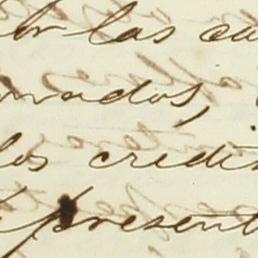 por las cu
rados,
los credit
present